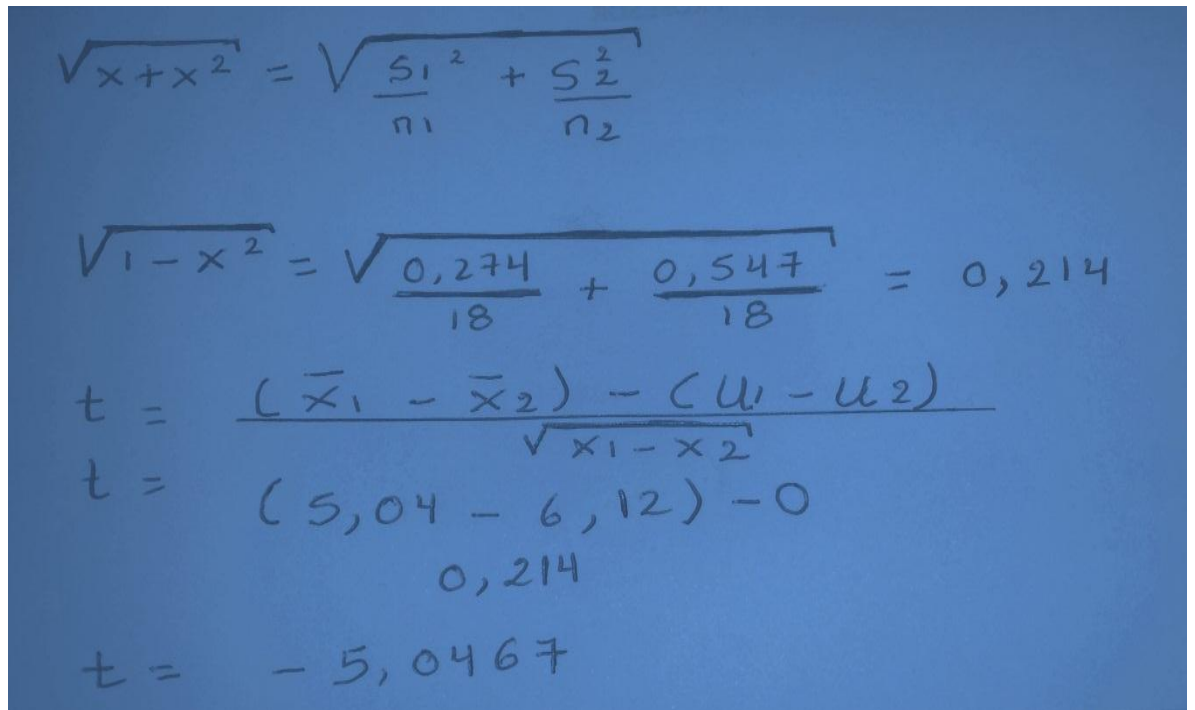 √x+x² = √S₁²/n₁ + S₂²/n₂
√1-x² = √0,274/18 + 0,547/18 = 0,214
t = (x̄₁ - x̄₂) - (U₁ - U₂)
√x₁-x₂
t = (5,04 - 6,12) - 0
0,214
t = - 5,0467